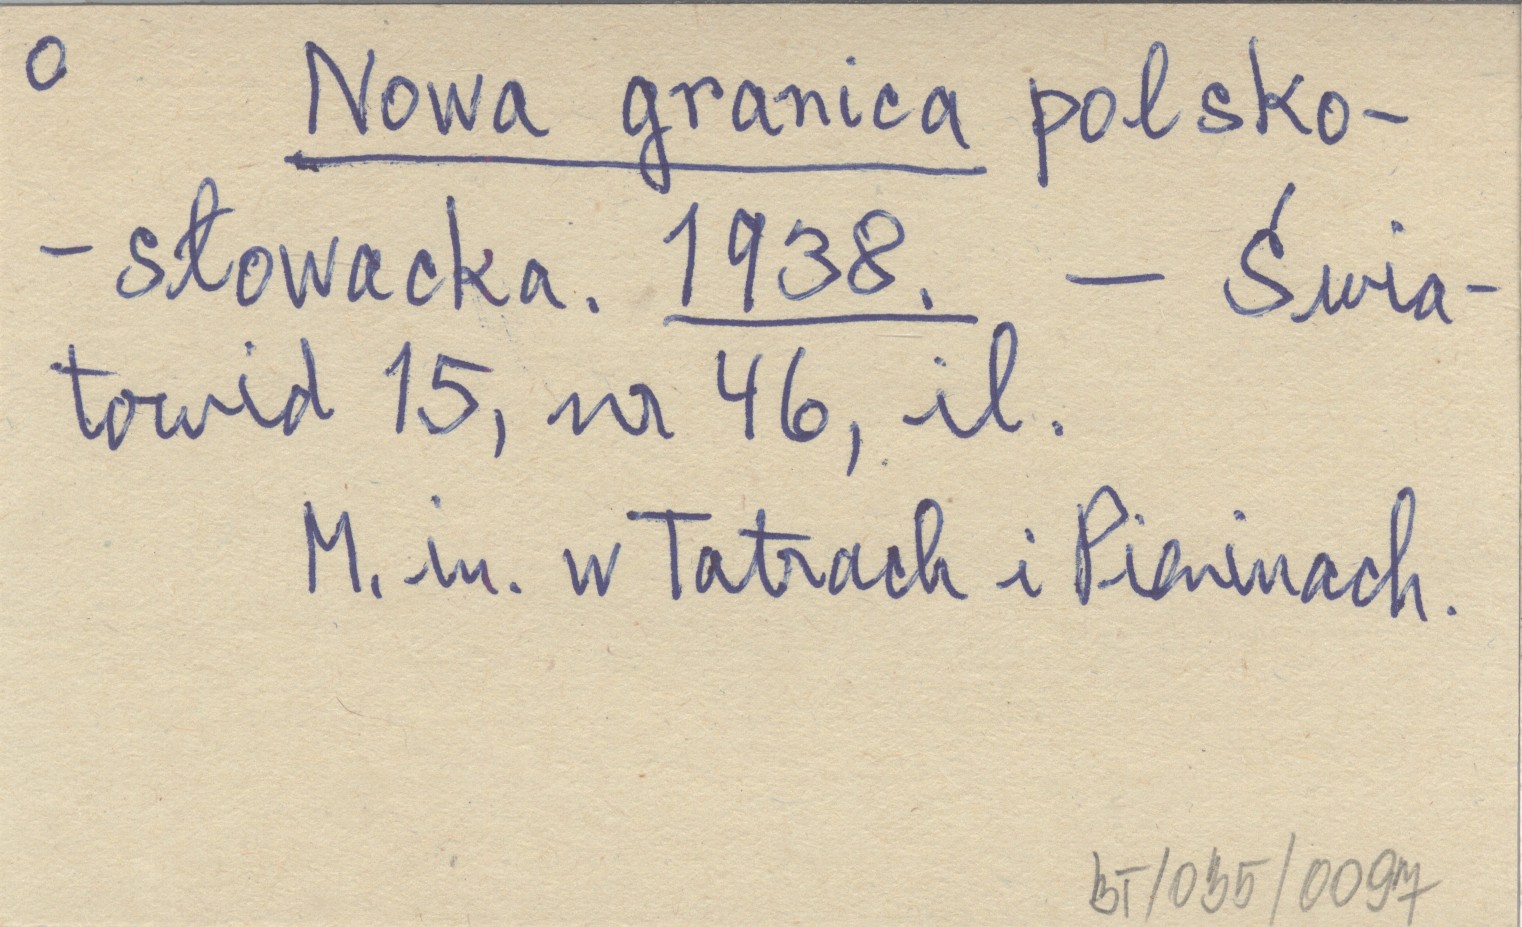 O Nowa granica polsko-
-słowacka. 1938. — Świa-
towid 15, nr 46, il.
M. in. w Tatrach i Pieninach.
BT/035/0097